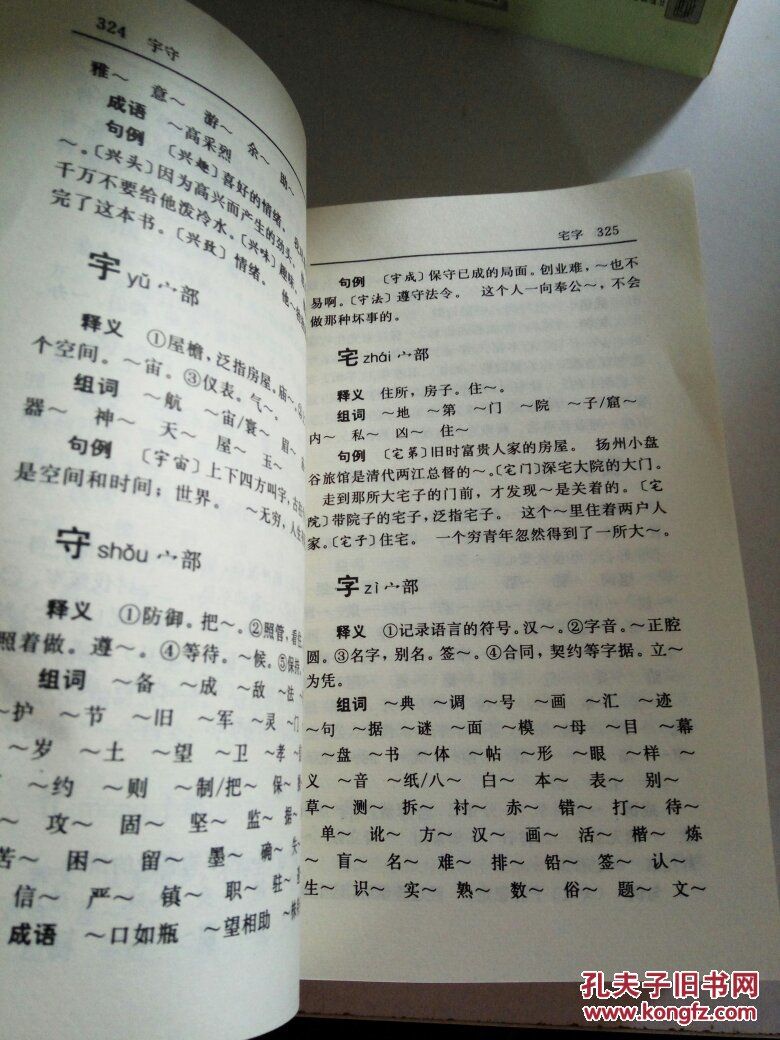 324 宇守
雅～ 意～ 游～ 余～ 助～
成语 ～高采烈
句例 〔兴趣〕喜好的情绪。
～。〔兴头〕因为高兴而产生的劲头。
千万不要给他泼冷水。〔兴味〕趣味。
完了这本书。〔兴致〕情绪。 他～
宇 yǔ 宀部
释义 ①屋檐，泛指房屋。庙～。
个空间。～宙。③仪表。气～。
组词 ～航 ～宙/寰～ 眉～
器～ 神～ 天～ 屋～ 玉～
句例 〔宇宙〕上下四方叫宇，古
是空间和时间；世界。 ～无穷，人生
守 shǒu 宀部
释义 ①防御。把～。②照管，看
照着做。遵～。④等待。～候。⑤保持。
组词 ～备 ～成 ～敌 ～法
～护 ～节 ～旧 ～军 ～灵 ～门
～岁 ～土 ～望 ～卫 ～孝
～约 ～则 ～制/把～ 保～
攻～ 固～ 坚～ 监～ 据～
苦～ 困～ 留～ 墨～ 确～ 失～
信～ 严～ 镇～ 职～ 驻～
成语 ～口如瓶 ～望相助
宅字 325
句例 〔守成〕保守已成的局面。创业难，～也不
易啊。〔守法〕遵守法令。 这个人一向奉公～，不会
做那种坏事的。
宅 zhái 宀部
释义 住所，房子。住～。
组词 ～地 ～第 ～门 ～院 ～子/窟～
内～ 私～ 凶～ 住～
句例 〔宅第〕旧时富贵人家的房屋。 扬州小盘
谷旅馆是清代两江总督的～。〔宅门〕深宅大院的大门。
走到那所大宅子的门前，才发现～是关着的。〔宅
院〕带院子的宅子，泛指宅子。 这个～里住着两户人
家。〔宅子〕住宅。 一个穷青年忽然得到了一所大～。
字 zì 宀部
释义 ①记录语言的符号。汉～。②字音。～正腔
圆。③名字，别名。签～。④合同，契约等字据。立～
为凭。
组词 ～典 ～调 ～号 ～画 ～汇 ～迹
～句 ～据 ～谜 ～面 ～模 ～母 ～目 ～幕
～盘 ～书 ～体 ～帖 ～形 ～眼 ～样 ～
义 ～音 ～纸/八～ 白～ 本～ 表～ 别～
草～ 测～ 拆～ 衬～ 赤～ 错～ 打～ 待～
单～ 讹～ 方～ 汉～ 画～ 活～ 楷～ 炼
～ 盲～ 名～ 难～ 排～ 铅～ 签～ 认～
生～ 识～ 实～ 熟～ 数～ 俗～ 题～ 文～
孔夫子旧书网
www.kongfz.com